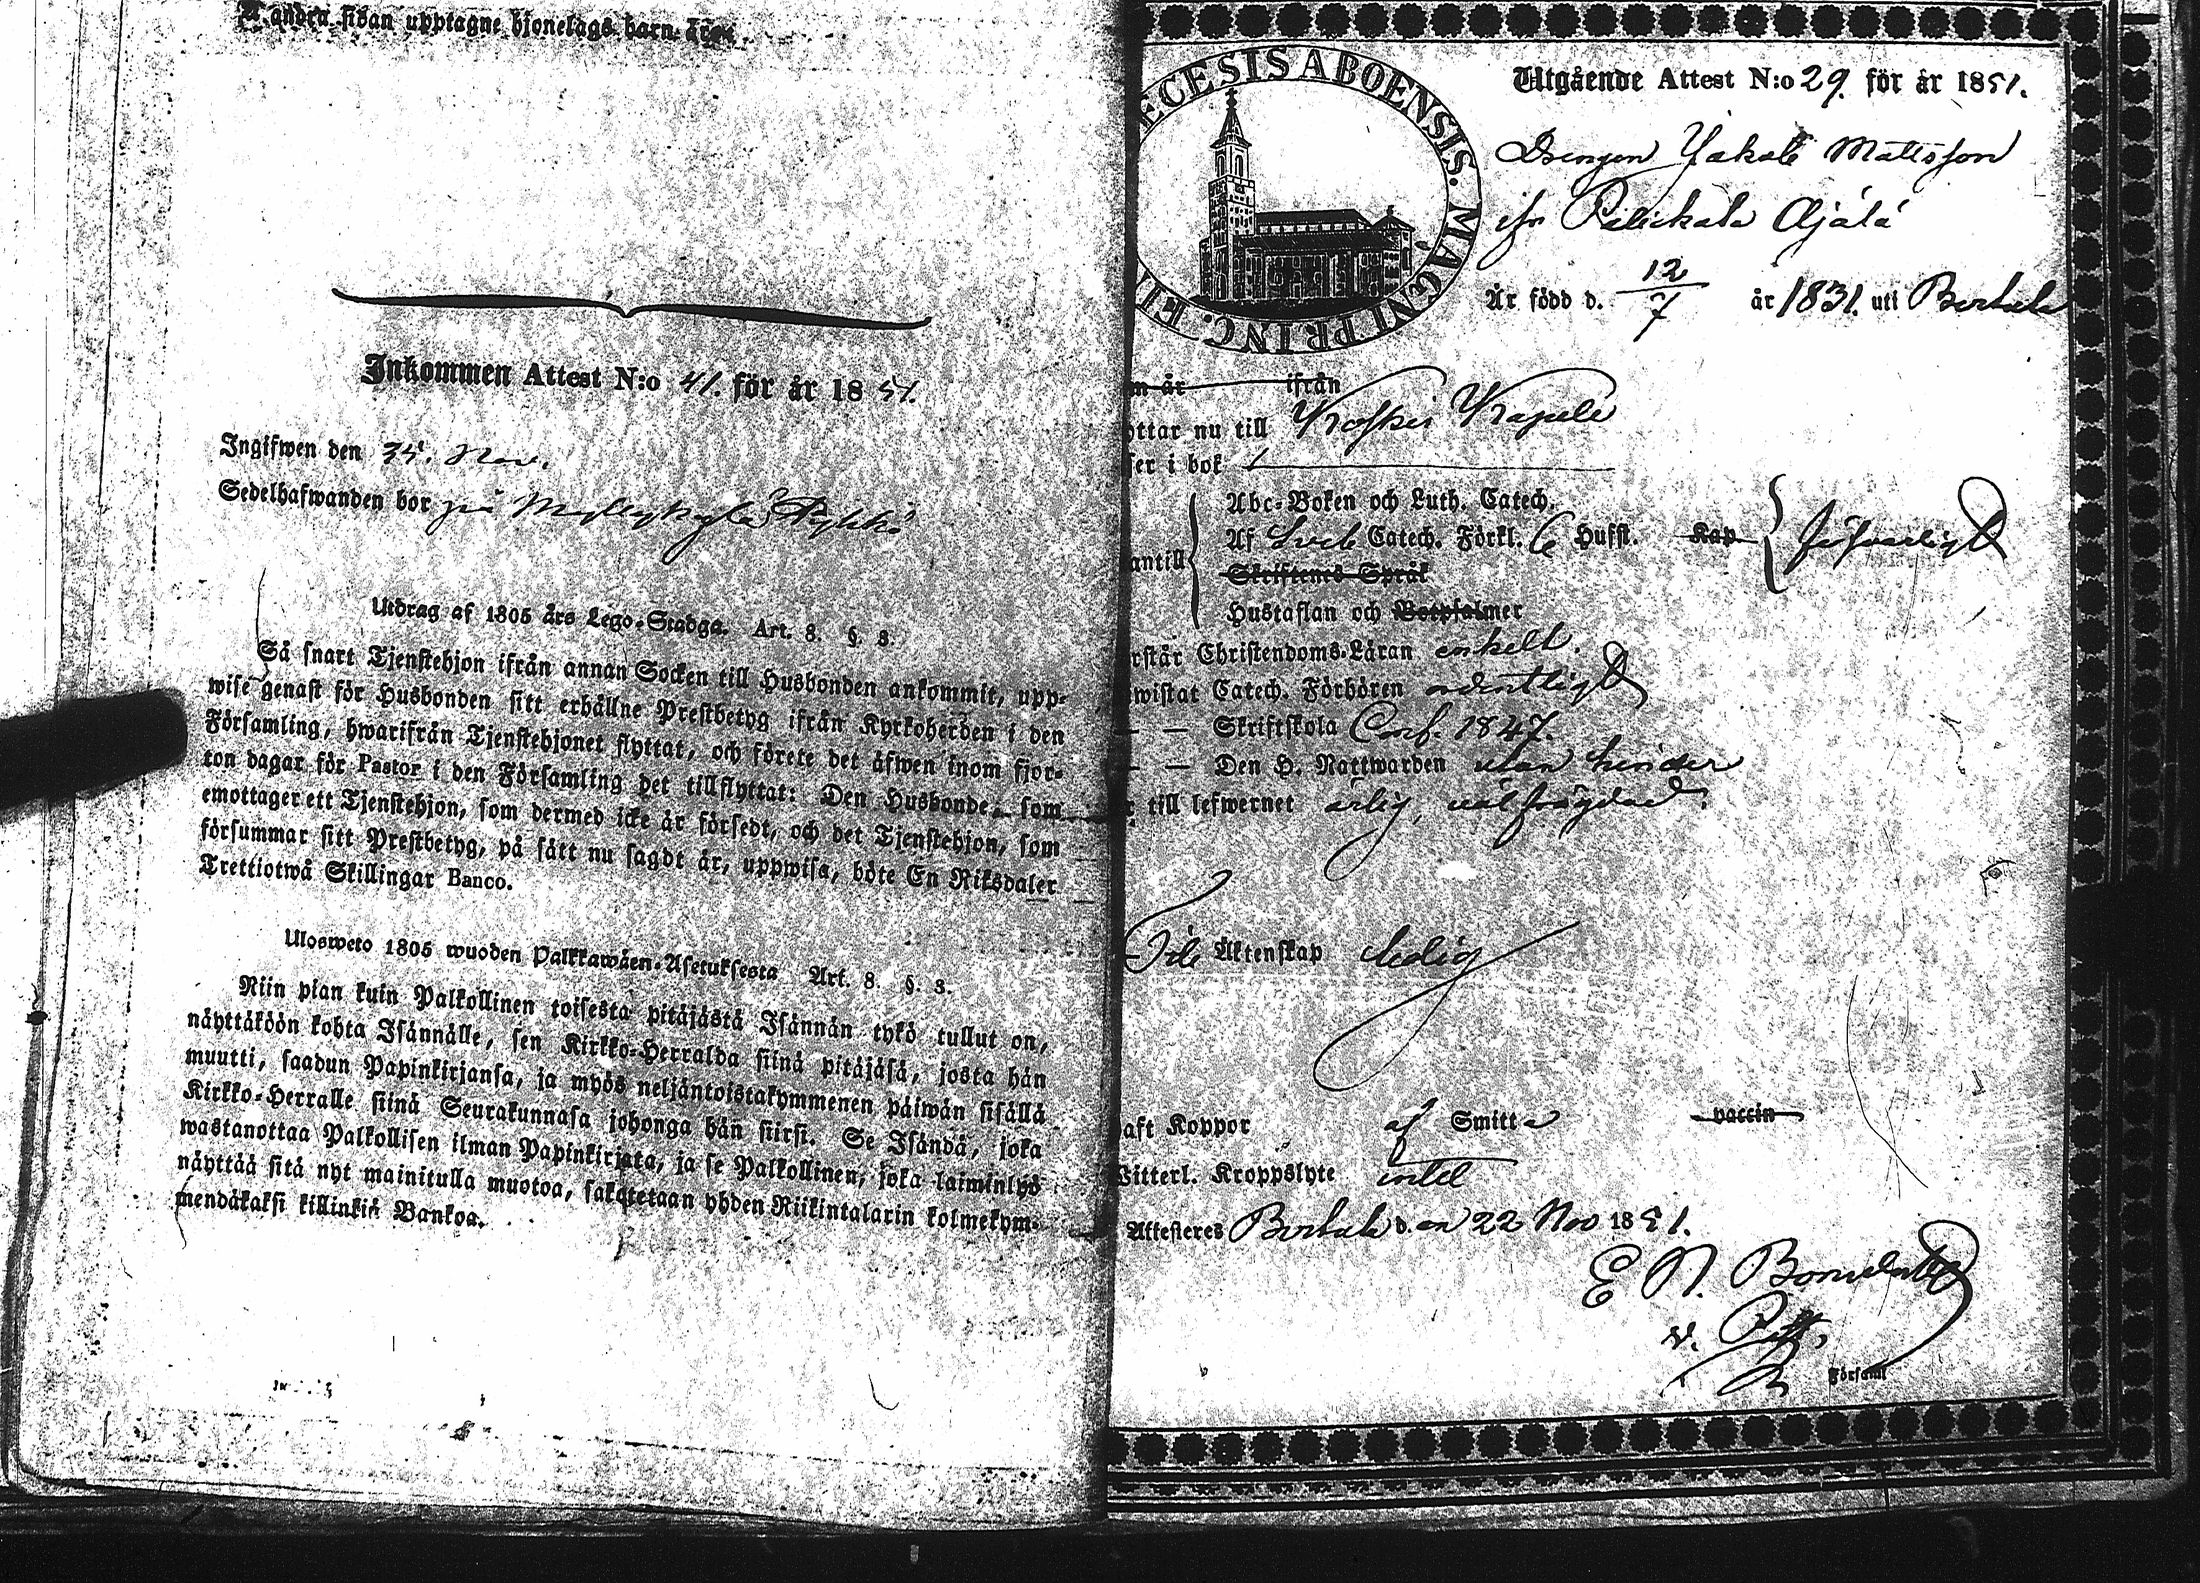 å andra sidan upptagne hjonelags barn äro:
Inkommen Attest N:o 41. för år 1851.
Ingifwen den 35. Nov.
Sedelhafwanden bor på Myllykylä
Utdrag af 1805 års Lego-Stadga. Art. 8. §. 8.
Så snart Tjenstehjon ifrån annan Socken till Husbonden ankommit, upp-
wise genast för Husbonden sitt erhållne Prestbetyg ifrån Kyrkoherden i den
Församling, hwarifrån Tjenstehjonet flyttat, och förete det äfwen inom fjor-
ton dagar för Pastor i den Församling det tillflyttat: Den Husbonde, som
emottager ett Tjenstehjon, som dermed icke är försedt, och det Tjenstehjon, som
försummar sitt Prestbetyg, på sätt nu sagdt är, uppwisa, böte En Riksdaler
Trettiotwå Skillingar Banco.
Ulosweto 1805 wuoden Palkkawäen-Asetuksesta Art. 8. §. 8.
Niin pian kuin Palkollinen toisesta pitäjästä Isännän tykö tullut on,
näyttäköön kohta Isännälle, sen Kirkko-Herralda siinä pitäjäsä, josta hän
muutti, saadun Papinkirjansa, ja myös neljäntoistakymmenen päiwän sisällä
Kirkko-Herralle siinä Seurakunnasa johonga hän siirsi. Se Isändä, joka
wastanottaa Palkollisen ilman Papinkirjata, ja se Palkollinen, joka laiminlyö
näyttää sitä nyt mainitulla muotoa, sakotetaan yhden Riikintalarin kolmekym-
mendäkaksi killinkiä Bankoa.
ECESIS ABOENSIS. MAGNI PRINC. FI
Utgående Attest N:o 29. för år 1851.
Drengen Jakob Mattsson
ifr Pälickala Äjälä
Är född d. 12/7 år 1831. uti Bertula
m år ifrån
ttar nu till Koskis Kapell
ser i bok
Abc-Boken och Luth. Catech.
antill Af Sveb Catech. Förkl. 6 Hufst. Kap försvarligt
Skriftenes Språk
Hustaflan och Botpsalmer
rstår Christendoms-Läran enkelt.
wistat Catech. Förhören ordentligt
— — Skriftskola Conf. 1847.
— — Den H. Nattwarden utan hinder
till lefwernet ärlig, välfrägdad.
Till Äktenskap ledig
aft Koppor af Smitta vaccin
Witterl. Kroppslyte intet
Attesteres Bertula d. en 22 Nov 1851.
E N.
v.
Församl